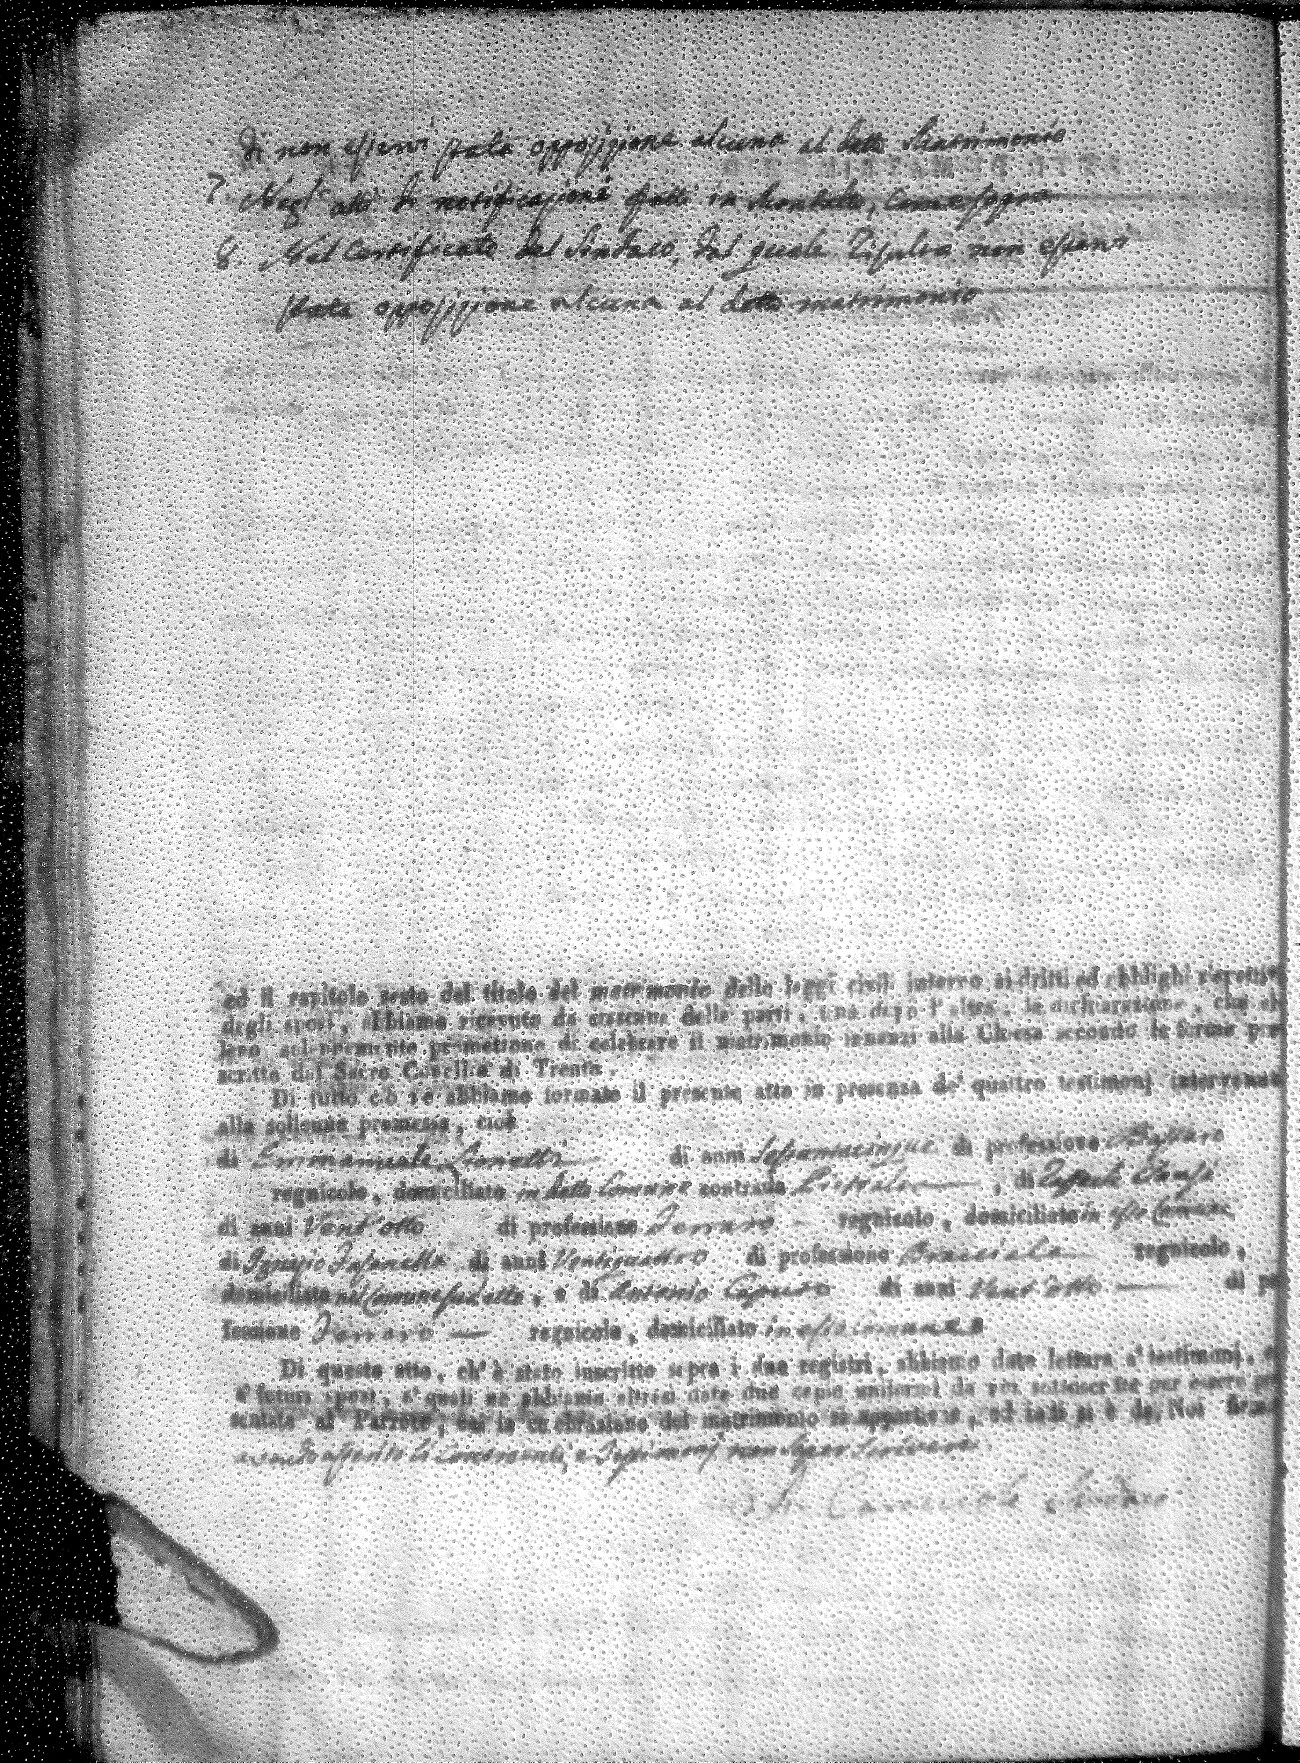 di non esservi stata opposizione alcuna al detto Matrimonio
7. Negl' atti di notificazione fatti in
8. Nel Certificato del Sindaco, dal quale risulta non esservi
stata opposizione alcuna al detto matrimonio
ed il capitolo sesto del titolo del matrimonio delle leggi civili intorno ai dritti ed obblighi rispettivi
degli sposi, abbiamo ricevuto da ciascuna delle parti, una dopo l'altra, la dichiarazione, che el
leno solennemente promettono di celebrare il matrimonio innanzi alla Chiesa secondo le forme pre
scritte dal Sacro Concilio di Trento.
Di tutto ciò ne abbiamo formato il presente atto in presenza de' quattro testimonj intervenuti
alla solenne promessa, cioè
di Emmanuele di anni Sessantacinque di professione
regnicolo, domiciliato in detto Comune contrada , di
di anni Vent'otto di professione Ferraro - regnicolo, domiciliato in esso Comune
di Ignazio di anni Ventiquattro di professione Bracciale regnicolo,
domiciliato nel Comune sudetto, e di Antonio Caputo di anni Vent'otto di pro
fessione Ferraro regnicolo, domiciliato in esso Comune
Di questo atto, ch'è stato inscritto sopra i due registri, abbiamo dato lettura a' testimonj, e
a' futuri sposi, a' quali ne abbiamo altresì date due copie uniformi da noi sottoscritte per essere pre
sentate al Parroco, cui la celebrazione del matrimonio si appartiene, ed indi si è da Noi firmato
avendo asserito li Contraenti, e Testimonj non saper scrivere
Sindaco